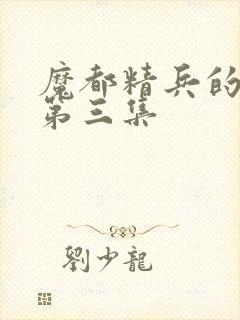 魔都精兵的
第三集
劉少龍